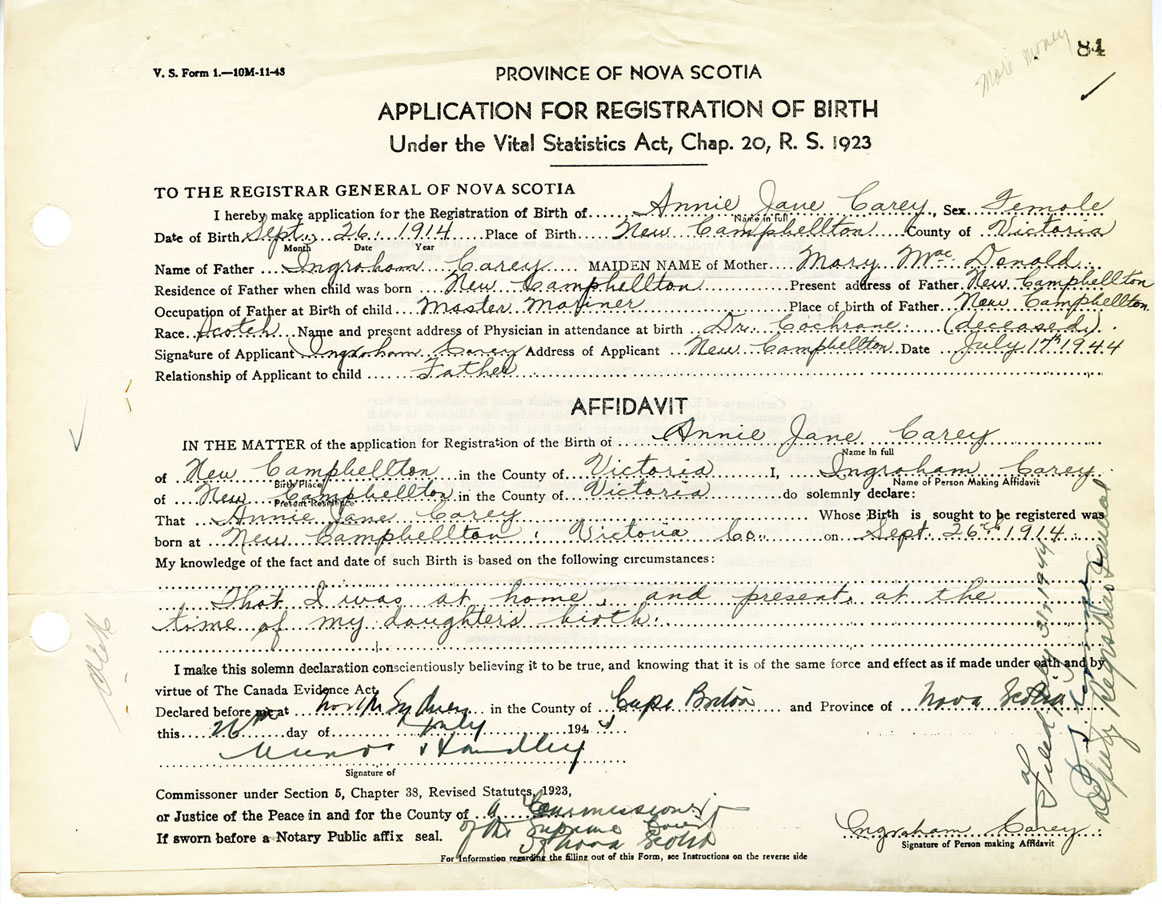 More money
84
V. S. Form 1.—10M-11-43
PROVINCE OF NOVA SCOTIA
APPLICATION FOR REGISTRATION OF BIRTH
Under the Vital Statistics Act, Chap. 20, R. S. 1923
TO THE REGISTRAR GENERAL OF NOVA SCOTIA
I hereby make application for the Registration of Birth of Annie Jane Carey, Sex Female
Name in full
Date of Birth Sept. 26. 1914 Place of Birth New Campbellton County of Victoria
Month Date Year
Name of Father Ingraham Carey MAIDEN NAME of Mother Mary Mac Donald
Residence of Father when child was born New Campbellton Present address of Father New Campbellton
Occupation of Father at Birth of child Master Mariner Place of birth of Father New Campbellton
Race Scotch Name and present address of Physician in attendance at birth Dr. Cochrane. (deceased).
Signature of Applicant Ingraham Carey Address of Applicant New Campbellton Date July 17th 1944
Relationship of Applicant to child Father
AFFIDAVIT
IN THE MATTER of the application for Registration of the Birth of Annie Jane Carey
Name in full
of New Campbellton in the County of Victoria I, Ingraham Carey
Birth Place Name of Person Making Affidavit
of New Campbellton in the County of Victoria do solemnly declare:
Present Residence
That Annie Jane Carey Whose Birth is sought to be registered was
born at New Campbellton, Victoria Co. on Sept. 26th 1914.
My knowledge of the fact and date of such Birth is based on the following circumstances:
That I was at home, and present, at the
time of my daughters birth.
I make this solemn declaration conscientiously believing it to be true, and knowing that it is of the same force and effect as if made under oath and by
virtue of The Canada Evidence Act.
Declared before me at North Sydney in the County of Cape Breton and Province of Nova Scotia
this 26th day of July 1944
Handley
Signature of
Commissioner under Section 5, Chapter 38, Revised Statutes, 1923,
or Justice of the Peace in and for the County of A Commissioner
If sworn before a Notary Public affix seal. of the Supreme Court
of Nova Scotia
Ingraham Carey
Signature of Person making Affidavit
For Information regarding the filling out of this Form, see Instructions on the reverse side
Filed July 31, 1944
Deputy Registrar General